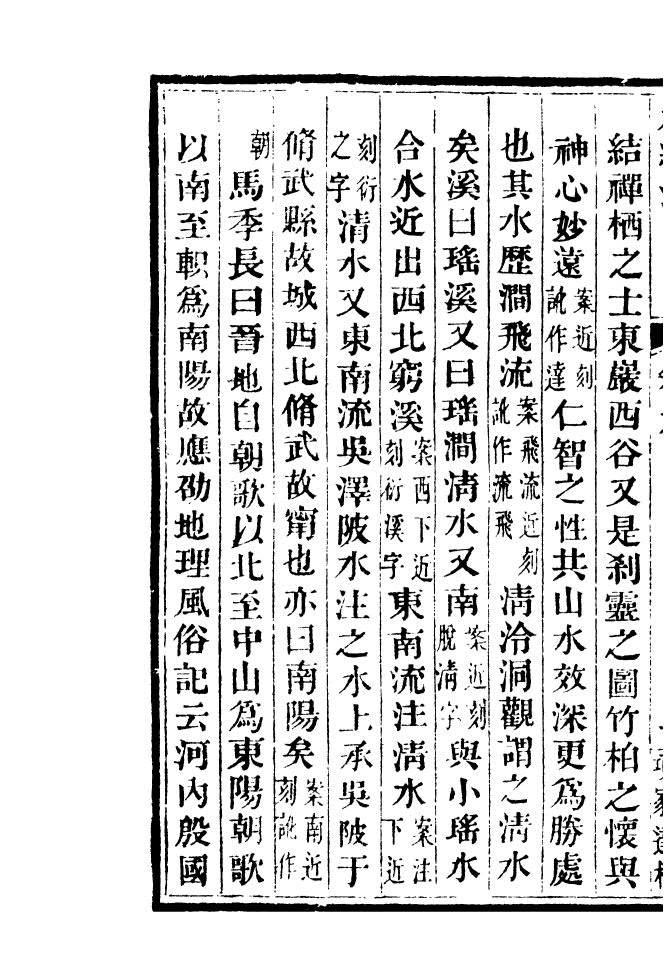 結禪栖之士東巖西谷又是刹靈之圖竹柏之懷與
神心妙遠案近刻訛作達仁智之性共山水效深更爲勝處
也其水歷澗飛流案飛流近刻訛作流飛淸泠洞觀謂之淸水
矣溪曰瑤溪又曰瑤澗淸水又南案近刻脫淸字與小瑤水
合水近出西北窮溪案西下近刻衍溪字東南流注淸水案注下近
刻衍之字淸水又東南流吳澤陂水注之水上承吳陂于
脩武縣故城西北脩武故甯也亦曰南陽矣案南近刻訛作
朝馬季長曰晉地自朝歌以北至中山爲東陽朝歌
以南至軹爲南陽故應劭地理風俗記云河內殷國